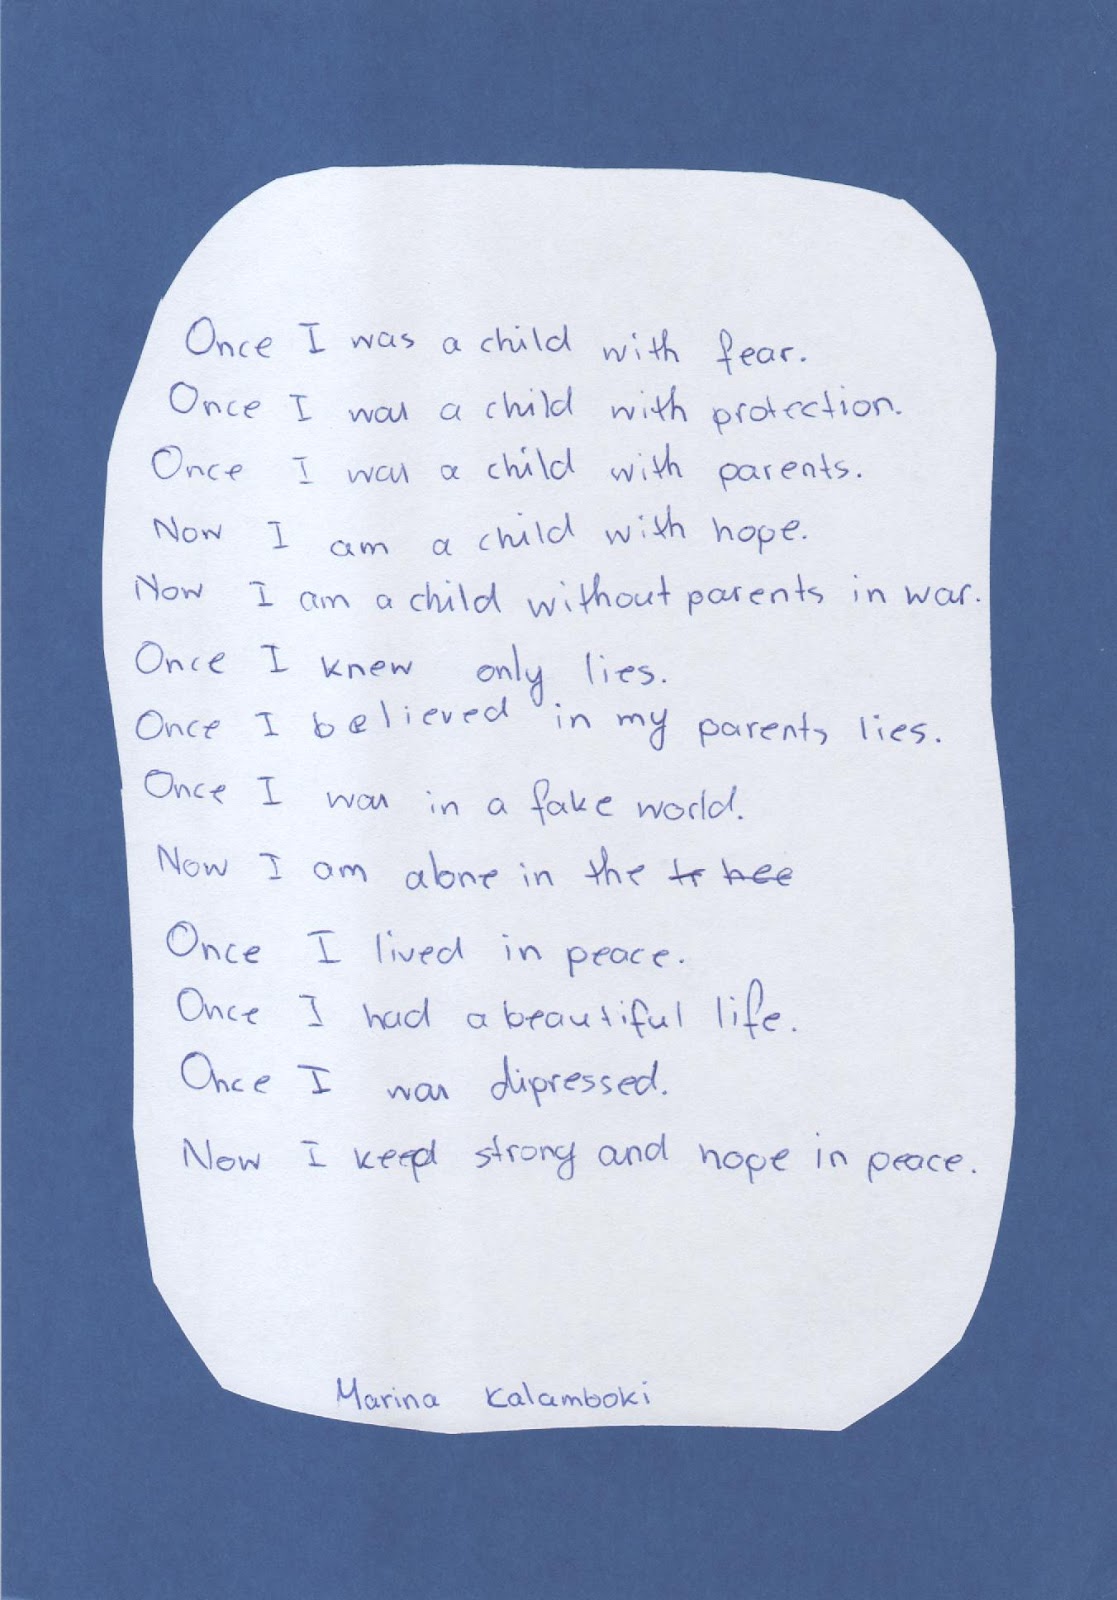 Once I was a child with fear.
Once I was a child with protection.
Once I was a child with parents.
Now I am a child with hope.
Now I am a child without parents in war.
Once I knew only lies.
Once I believed in my parents lies.
Once I was in a fake world.
Now I am alone in the
Once I lived in peace.
Once I had a beautiful life.
Once I was dipressed.
Now I keep strong and hope in peace.
Marina Kalamboki